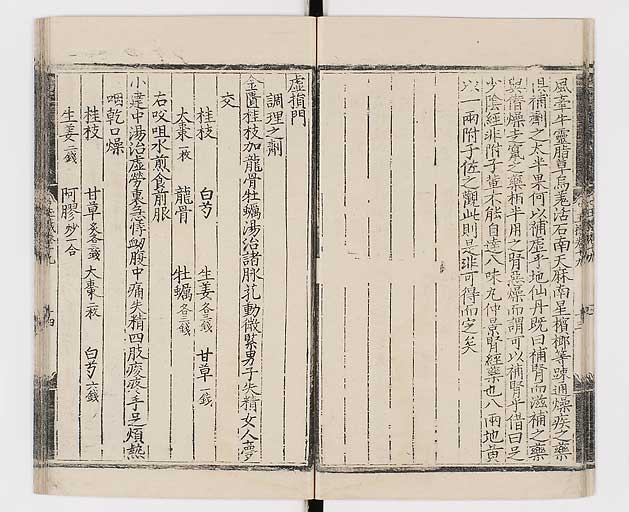 風牽牛靈脂草烏羌活石南天麻南星檳榔等疎通燥疾之藥
俱補劑之太半果何以補虛乎地仙丹既曰補腎而滋補之藥
與僭燥者寞之藥相半用之腎惡燥而謂可以補腎乎借曰足
少陰經非附子等不能自達八味丸仲景腎經藥也八兩地黃
以一兩附子佐之觀此則是非可得而定矣
虛損門
調理之劑
金匱桂枝加龍骨牡蠣湯治諸脉芤動微緊男子失精女人夢
交
桂枝 白芍 生姜各三錢 甘草二錢
大棗二枚 龍骨 牡蠣各三錢
右㕮咀水煎食前服
小建中湯治虛勞裏急悸衂腹中痛失精四肢痠疼手足煩熱
咽乾口燥
桂枝 甘草炙各三錢 大棗二枚 白芍六錢
生姜二錢 阿膠炒一合